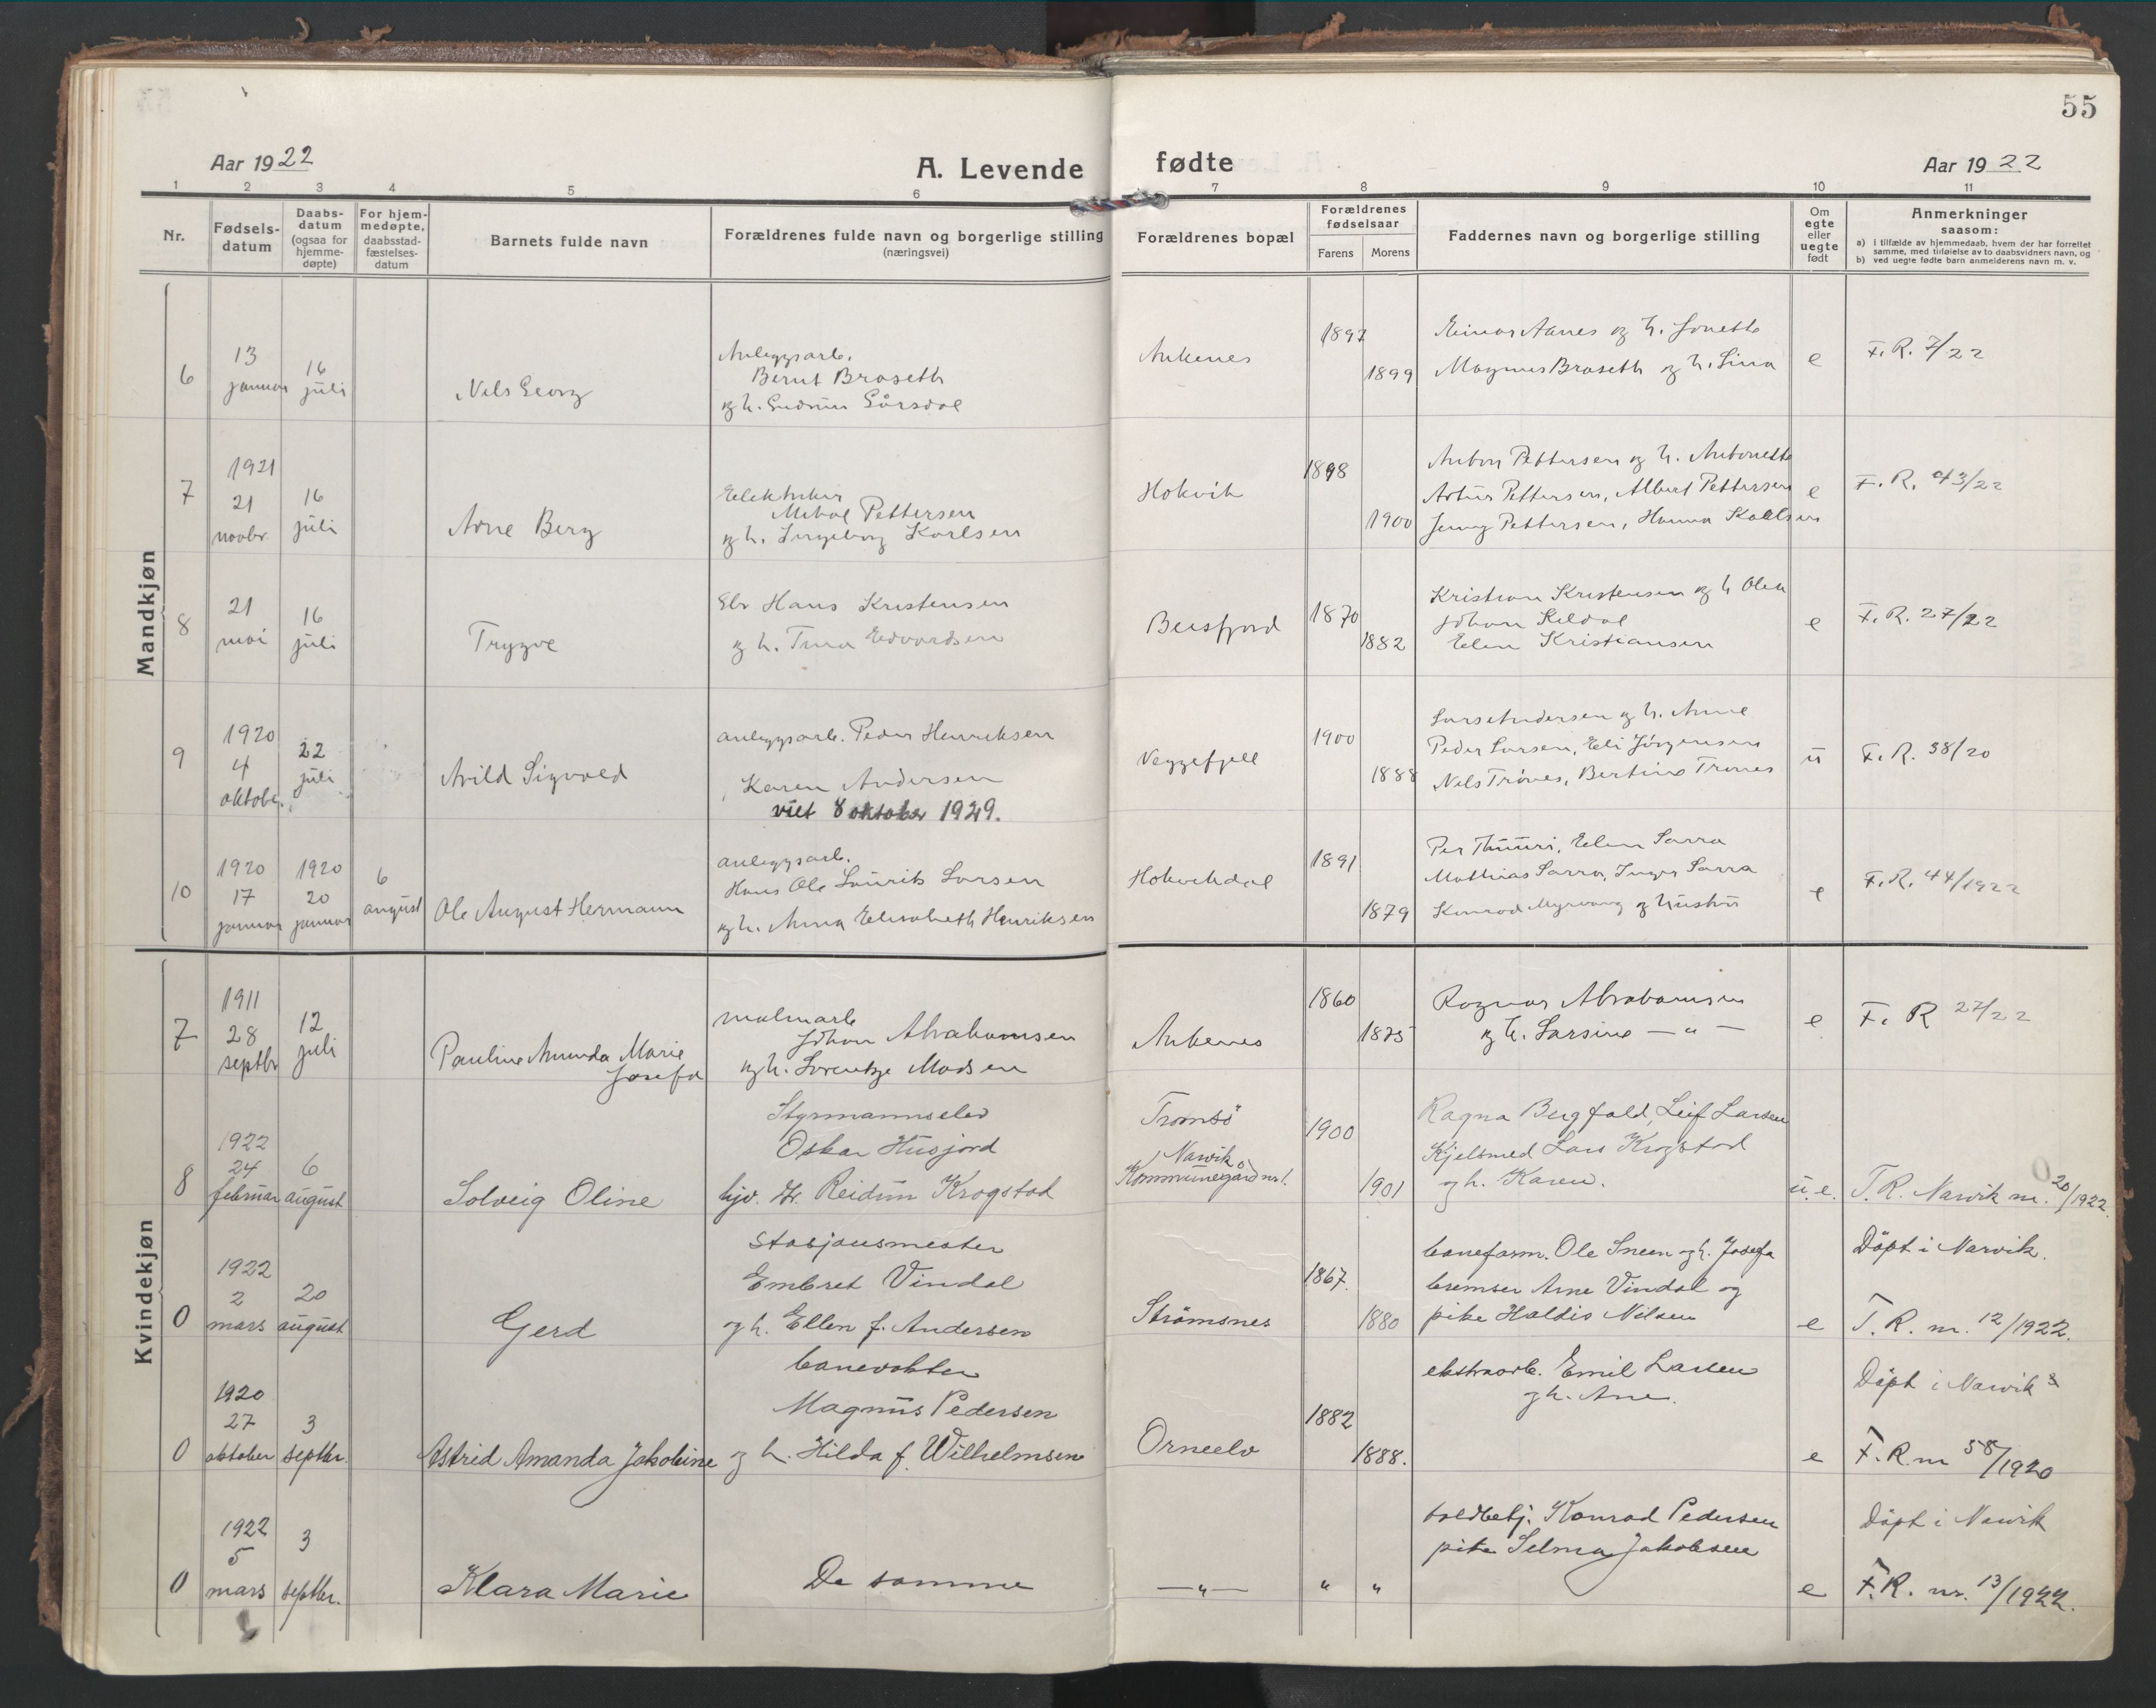 55
Aar 1922
A. Levende fødte
Aar 1922
1 2 3 4 5 6 7 8 9 10 11
Nr.
Fødsels-
datum
Daabs-
datum
(ogsaa for
hjemme-
døpte)
For hjem-
medøpte,
daabsstad-
fæstelses-
datum
Barnets fulde navn
Forældrenes fulde navn og borgerlige stilling
(næringsvei)
Forældrenes bopæl
Forældrenes
fødselsaar
Farens Morens
Faddernes navn og borgerlige stilling
Om
egte
eller
uegte
født
Anmerkninger
saasom:
a) i tilfælde av hjemmedaab, hvem der har forrettet
samme, med tilføielse av to daabsvidners navn, og
b) ved uegte fødte barn anmelderens navn m. v.
Mandkjøn
6
13
januar
16
juli
Nils Georg
Anleggsarb.
Bernt Broseth
og h. Gudrun
Ankenes
1897
1899
Einar Aanes og h. Jonette
Magnus Broseth og h. Lina
e
F. R. 7/22
7
1921
21
novbr.
16
juli
Arne Berg
Elektriker
Pettersen
og h. Ingeborg Karlsen
Hokvik
1898
1900
Anton Pettersen og h. Antonette
Artur Pettersen, Albert Pettersen
Jenny Pettersen, Hanna Karlsen
e
F. R. 43/22
8
21
mai
16
juli
Trygve
Hans Kristensen
og h. Tina Edvardsen
Beisfjord
1870
1882
Kristian Kristensen og h
Johan Kildal
Elen Kristiansen
e
F. R. 27/22
9
1920
4
oktober.
22
juli
Arild Sigvald
anleggsarb. Peder Henriksen
Karen Andersen
viet 8 oktober 1929.
Veggefjell
1900
1888
Lars Andersen og h. Anne
Peder Larsen, Eli Jörgensen
Nels Trönes, Bertine Trönes
u
F. R. 38/20
10
1920
17
januar
1920
20
januar
6
august
Ole August Hermann
anleggsarb.
Hans Ole Laurits Larsen
og h. Anna Elisabeth Henriksen
Hokvikdal
1891
1879
Per Thuuri, Elen Sarra
Mathias Sarra, Inger Sarra
Konrad Myrvang og hustru
e
F. R. 44/1922
Kvindekjøn
7
1911
28
septbr
12
juli
Pauline Amanda Marie
Josefa
malmarb
Johan Abrahamsen
og h. Lorentze Madsen
Ankenes
1860
1875
Ragnar Abrahamsen
og h. Larsine — " —
e
F. R 27/22
8
1922
24
februar
6
august
Solveig Oline
Styrmannselev
Oskar Husjord
Reidun Krogstad
Tromsö
Narvik
Kommunegård nr 1.
1900
1901
Ragna Bergfald, Leif Larsen
Kjelsmed Lars Krogstad
og h. Karen.
u. e.
F. R. Narvik nr. 20/1922.
0
1922
2
mars
20
august
Gerd
Stasjonsmester
Embret Vindal
og h. Ellen f. Andersen
Strömsnes
1867.
1880
baneform. Ole Sneen og h. Josefa
bremser Arne Vindal og
pike Haldis Nilsen
e
Döpt i Narvik.
F. R. nr. 12/1922.
0
1920
27
oktober
3
septbr.
Astrid Amanda Jakobine
banevokter
Magnus Pedersen
og h. Hilda f. Wilhelmsen
Orneelv
1882
1888.
ekstraarb. Emil Larsen
og h. Ane.
e
Döpt i Narvik
F. R. nr 58/1920
0
1922
5
mars
3
septbr.
Klara Marie
De samme
— " —
" "
toldbetj. Konrad Pedersen
pike Selma Jakobsen
e
Döpt i Narvik
F. R. nr. 13/1922.